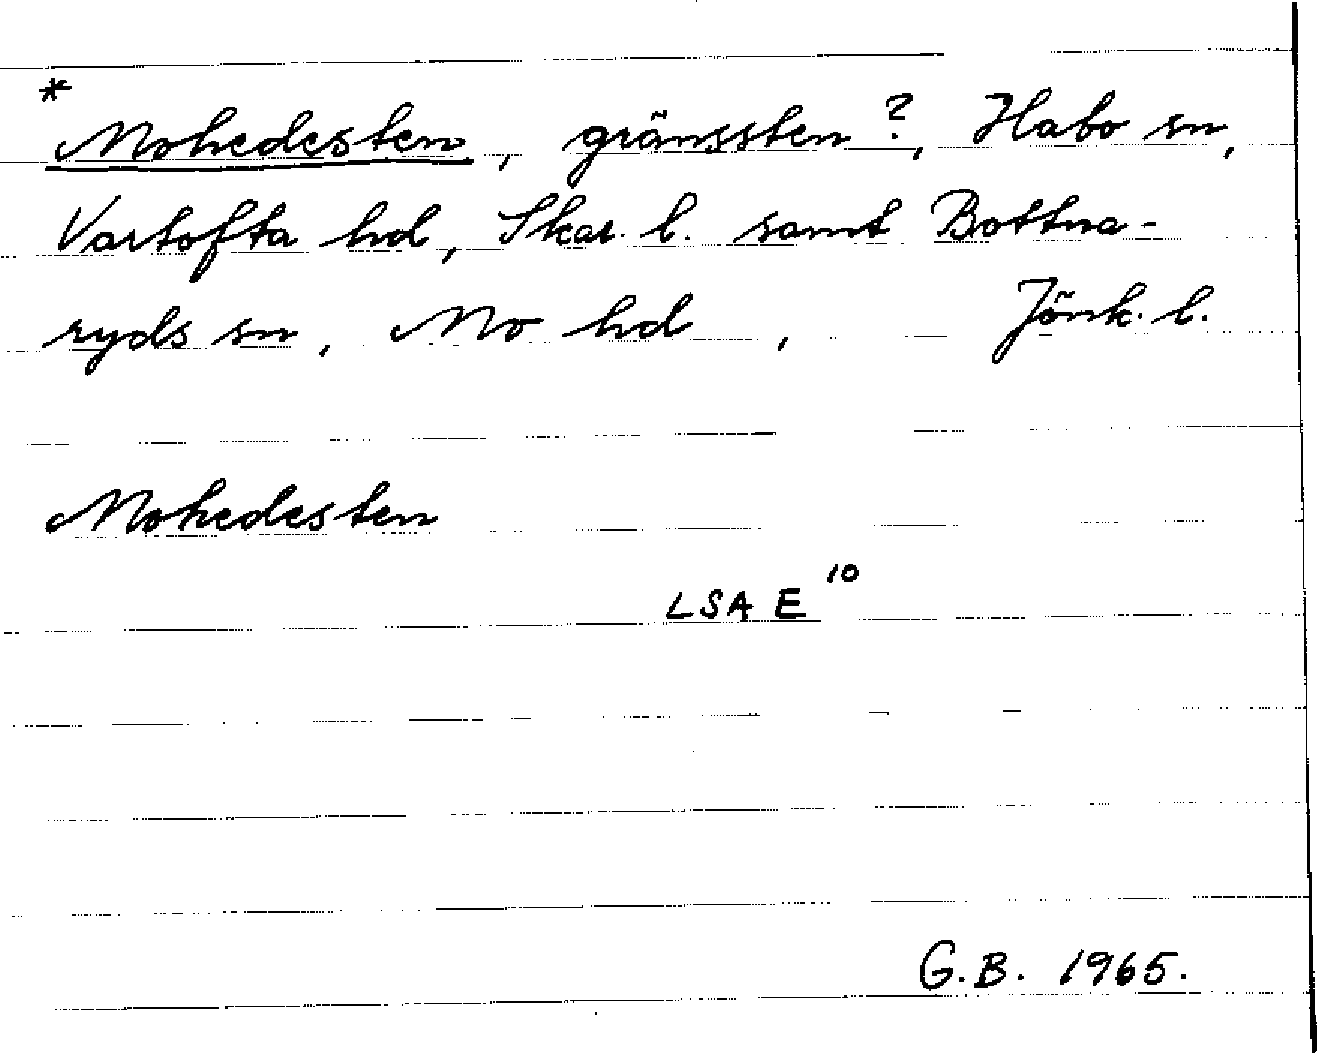 *
Mohedesten, gränssten?, Habo sn,
Vartofta hd, Skar. l. samt Bottna-
ryds sn, Mo hd, Jönk. l.
Mohedesten
LSA E 10
G.B. 1965.